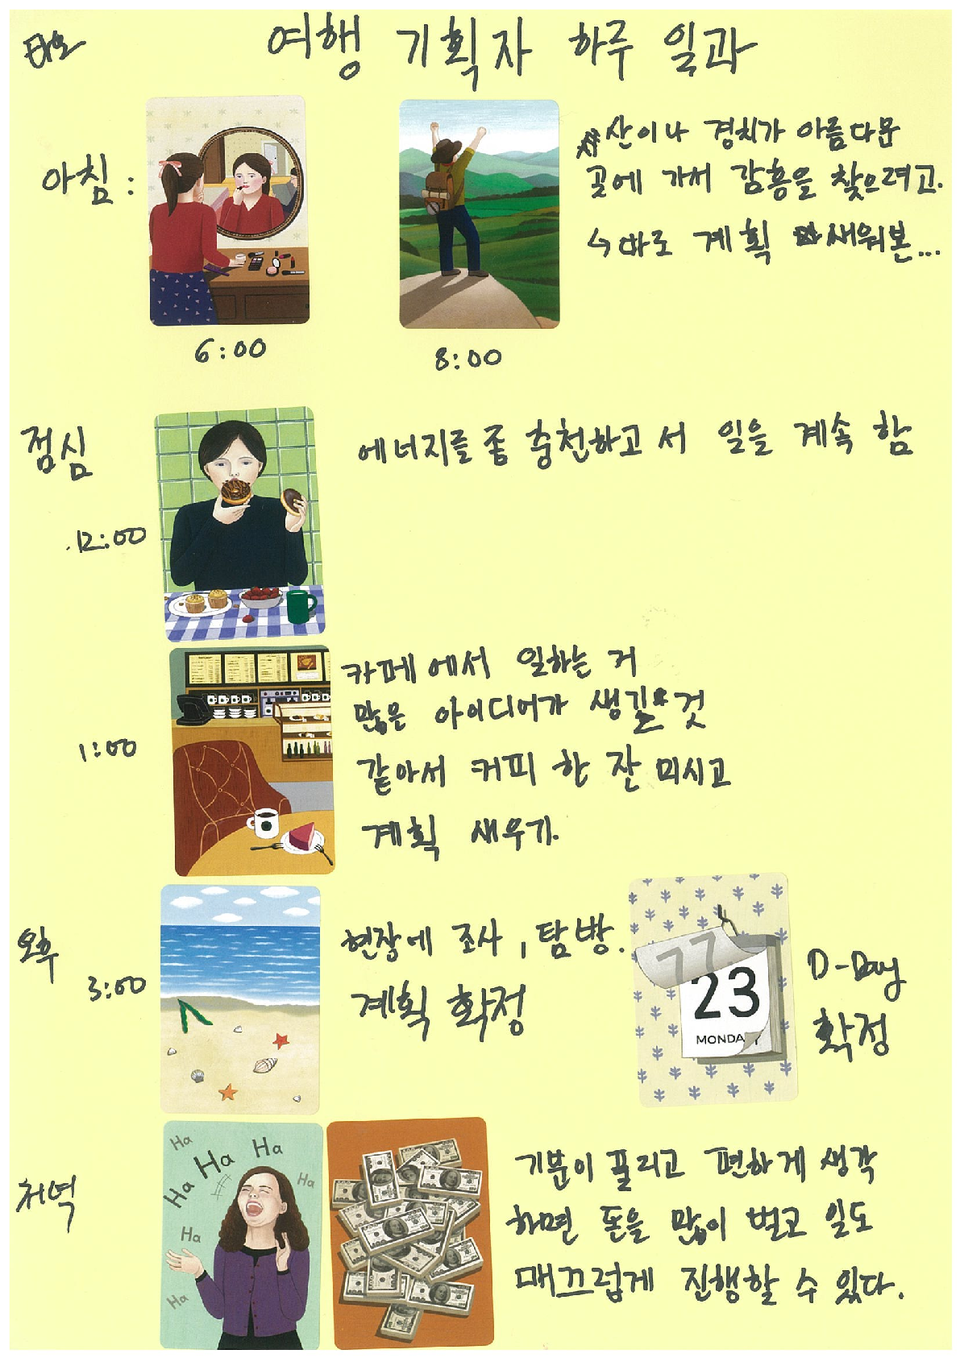 여행 기획자 하루 일과
아침 :
산이나 경치가 아름다문
곳에 가서 감흥을 찾으려고.
↳ 바로 계획 새워본...
6:00
8:00
점심
에너지를 좀 충천하고 서 일을 계속 함
12:00
카페에서 일하는 거
많은 아이디어가 생길 것
같아서 커피 한 잔 미시고
계획 새우기.
1:00
오후
3:00
현장에 조사, 탐방.
계획 확정
23
MONDAY
D-Day
확정
저녁
Ha
Ha
Ha
Ha
Ha
Ha
Ha
기분이 풀리고 편하게 생각
하면 돈을 많이 벌고 일도
매끄럽게 진행할 수 있다.